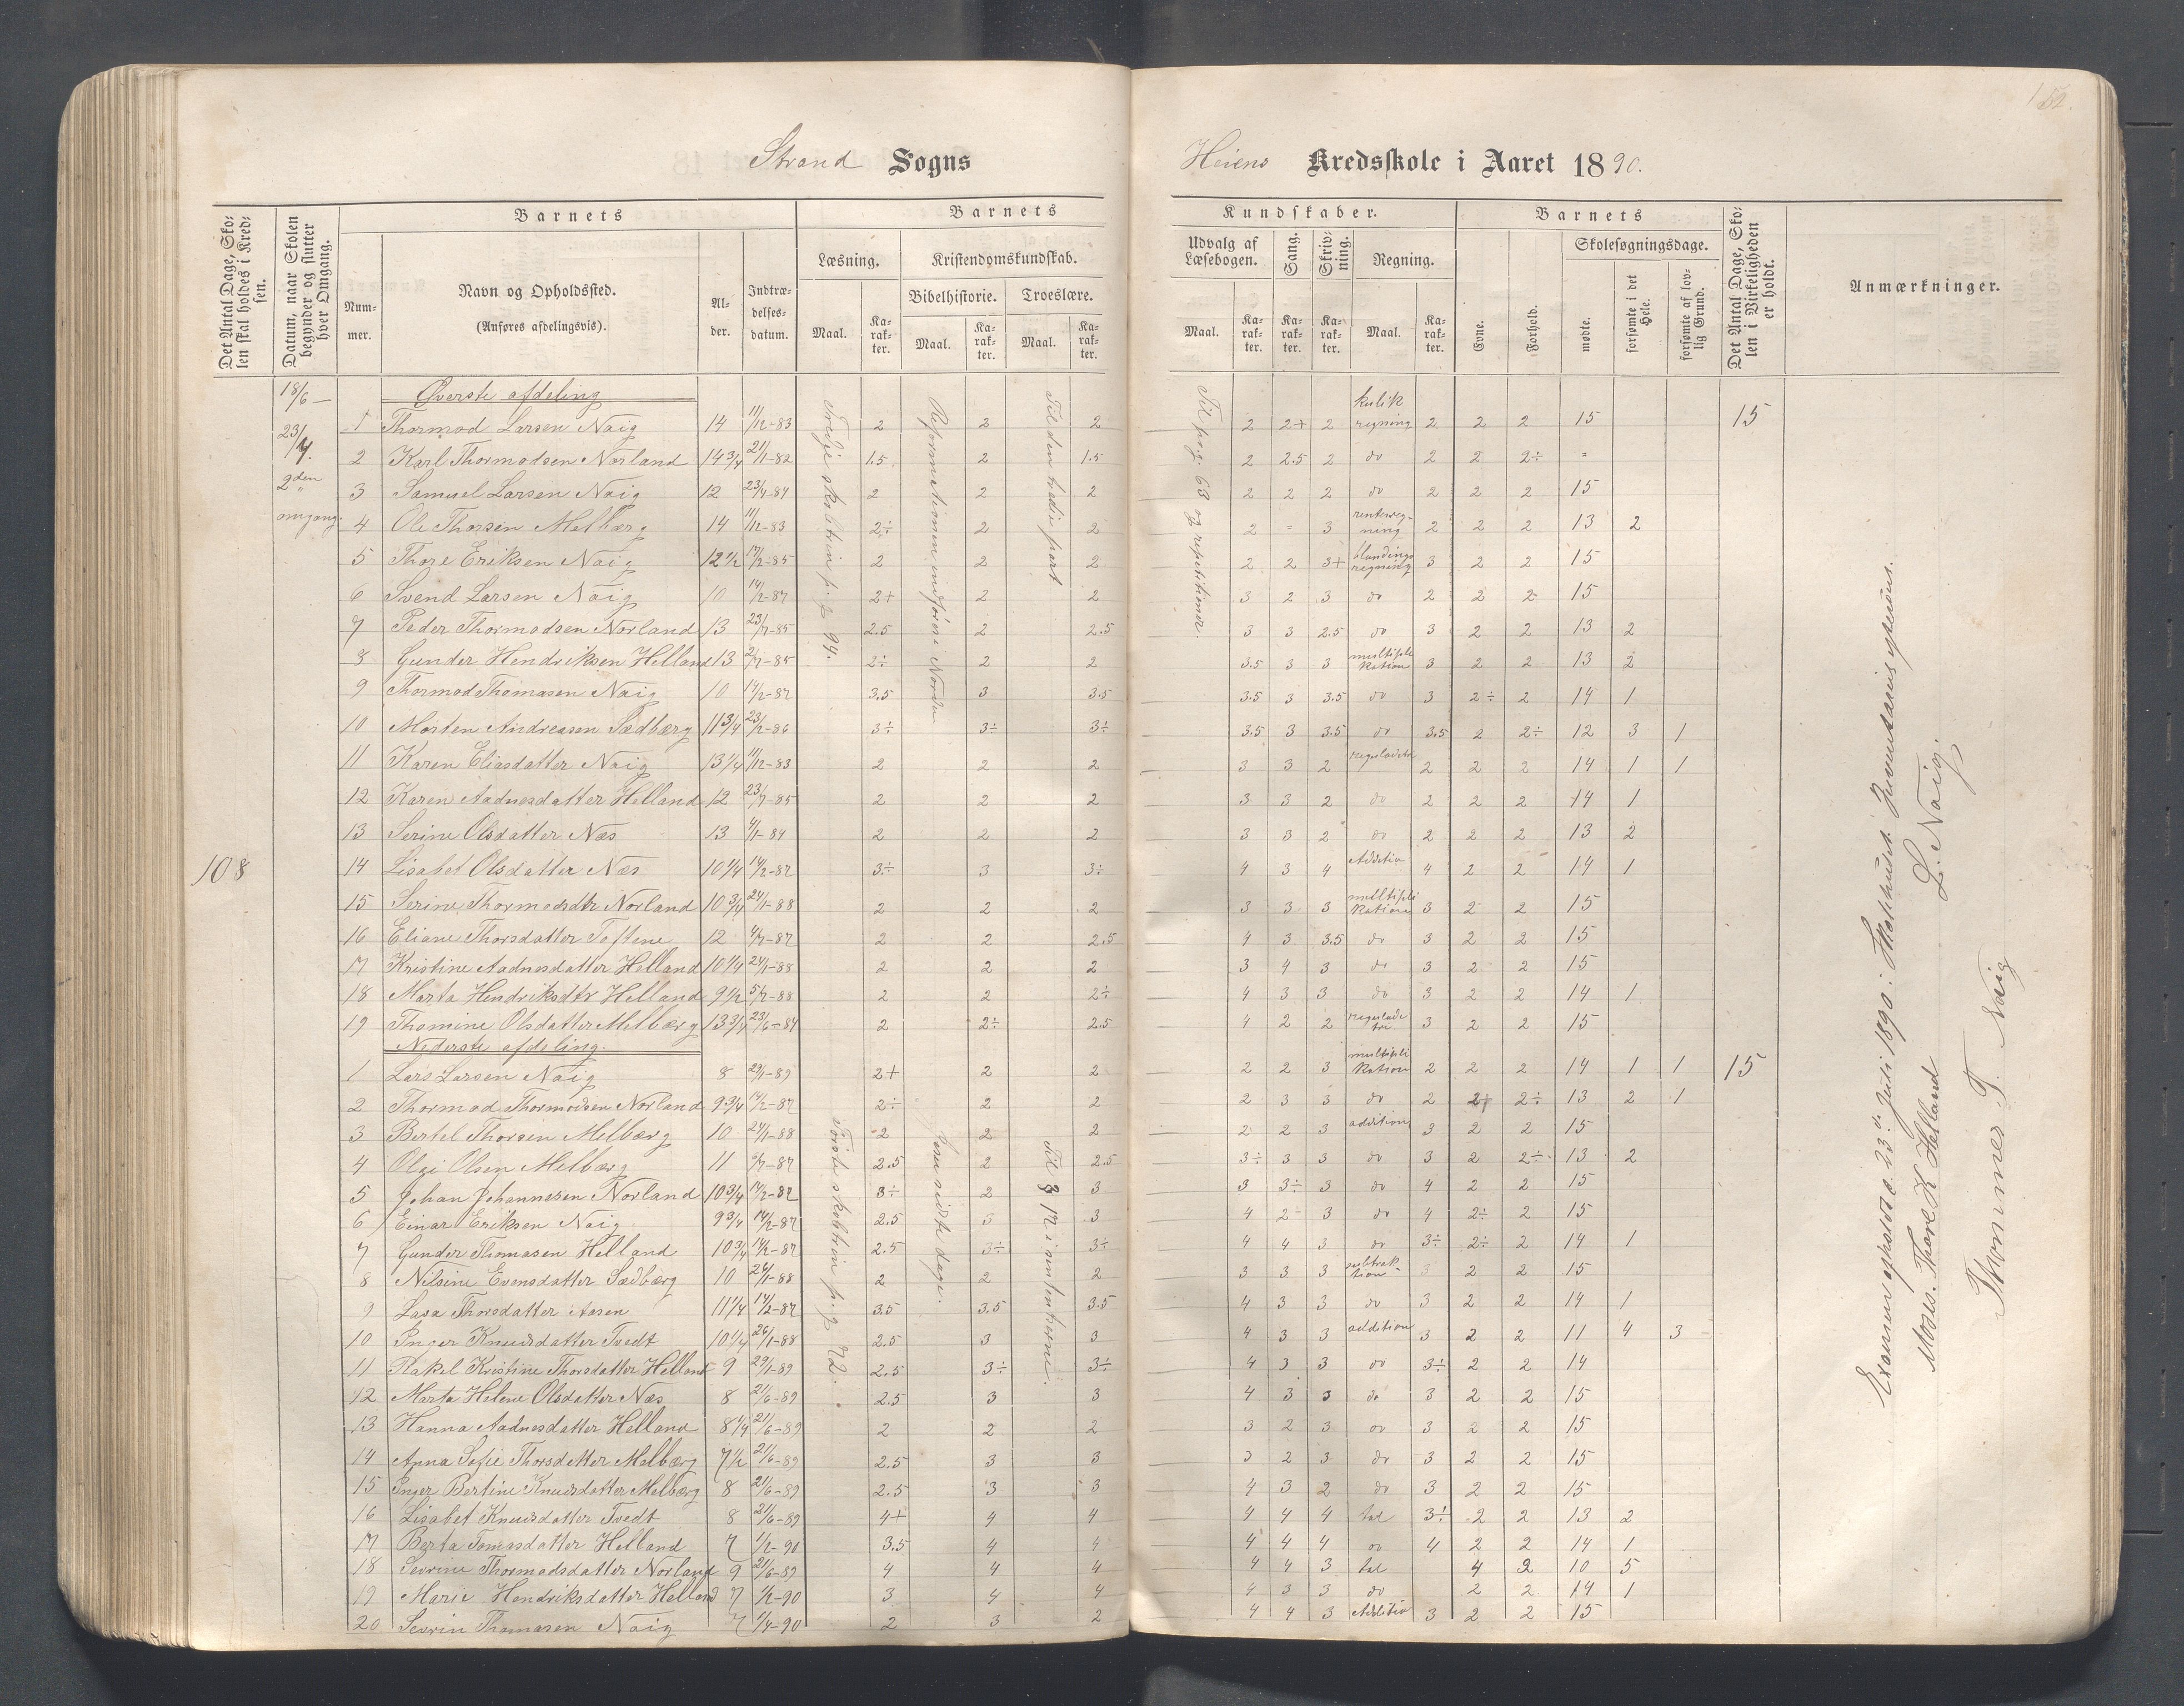 152.
Strand Sogns
Heiens Kredsskole i Aaret 1890.
Det Antal Dage, Skolen skal holdes i Kredsen.
Datum, naar Skolen begynder og slutter hver Omgang.
Barnets
Barnets
Kundskaber.
Barnets
Det Antal Dage, Skolen i Virkeligheden er holdt.
Anmærkninger.
Nummer.
Navn og Opholdssted.
(Anføres afdelingsvis).
Alder.
Indtrædelsesdatum.
Læsning.
Kristendomskundskab.
Bibelhistorie.
Troeslære.
Udvalg af Læsebogen.
Sang.
Skrivning.
Regning.
Evne.
Forhold.
Skolesøgningsdage.
mødte.
forsømte i det Hele.
forsømte af lovlig Grund.
Maal. Karakter. Maal. Karakter. Maal. Karakter.
Maal. Karakter. Karakter. Karakter. Maal. Karakter.
18/6 —
23/7.
2den omgang.
108
Øverste afdeling
1 Thormod Larsen Naig 14 11/12-83 2 2 2 2 2+ 2 kubikregning 2 2 2 15 15
2 Karl Thormodsen Norland 14 3/4 21/1-82 1.5 2 1.5 2 2.5 2 do 2 2 2÷ "
3 Samuel Larsen Naig 12 23/4-84 2 2 2 2 2 2 do 2 2 2 15
4 Ole Thorsen Melbærg 14 11/12-83 2÷ 2 2 2 = 3 renteregning 2 2 2 13 2
5 Thore Eriksen Naig 12 1/2 17/2-85 2 2 2 2 2 3+ blandingsregning 3 2 2 15
6 Svend Larsen Naig 10 14/2-87 2+ 2 2 3 2 3 do 2 2 2 15
7 Peder Thormodsen Norland 13 23/7-85 2.5 2 2.5 3 3 2.5 do 3 2 2 13 2
8 Gunder Hendriksen Helland 13 2/7-85 2÷ 2 2 3.5 3 3 multiplikation 3 2 2 13 2
9 Thormod Thomasen Naig 10 14/2-87 3.5 3 3.5 3.5 3 3.5 do 3 2÷ 2 14 1
10 Morten Andreasen Sædbærg 11 3/4 23/2-86 3÷ 3÷ 3÷ 3.5 3 3.5 do 3.5 2 2÷ 12 3 1
11 Karen Eliasdatter Naig 13 1/4 11/12-83 2 2 2 3 3 2 reguladetri 2 2 2 14 1 1
12 Karen Aadnesdatter Helland 12 23/7-85 2 2 2 3 3 2 do 2 2 2 14 1
13 Serine Olsdatter Næs 13 4/1-84 2 2 2 3 3 2 do 2 2 2 13 2
14 Lisabet Olsdatter Næs 10 1/4 14/2-87 3÷ 3 3÷ 4 3 4 Additio 4 2 2 14 1
15 Serine Thormodsdtr Norland 10 3/4 24/1-88 2 2 2 3 3 3 multiplikation 3 2 2 15
16 Eliane Thorsdatter Toftene 12 4/7-87 2 2 2.5 4 3 3.5 do 3 2 2 15
17 Kristine Aadnesdatter Helland 10 1/4 24/1-88 2 2 2 3 4 3 do 3 2 2 15
18 Marta Hendriksdtr Helland 9 1/2 5/7-88 2 2 2÷ 4 3 3 do 3 2 2 14 1
19 Thomine Olsdatter Melbærg 13 3/4 23/6-84 2 2÷ 2.5 4 2 2 reguladetri 3 2 2 15
Nederste afdeling.
1 Lars Larsen Naig 8 29/1-89 2+ 2 2 2 2 3 multiplikation 2 2 2 14 1 1 15
2 Thormod Thormodsen Norland 9 3/4 14/2-87 2÷ 2 2 2 3 3 do 2 2÷ 13 2 1
3 Bertel Thorsen Melbærg 10 24/1-88 2 2 2 2 2 3 addition 3 2 2 15
4 Olai Olsen Melbærg 11 9/7-87 2.5 2 2.5 3÷ 3 3 do 3 2 2÷ 13 2
5 Johan Johannesen Norland 10 3/4 14/2-87 3÷ 2 3 3 3÷ 3 do 4 2 2 15
6 Einar Eriksen Naig 9 3/4 14/2-87 2.5 3 3 4 2 3 do 4 2÷ 2 15
7 Gunder Thomasen Helland 10 3/4 14/2-87 2.5 3÷ 3÷ 4 4 3 do 3÷ 2÷ 2 14 1
8 Nilsine Evensdatter Sædbærg 10 26/1-88 2 2 2 3 3 3 subtraktion 3 2 2 15
9 Lasa Thorsdatter Aasen 11 1/4 14/2-87 3.5 3.5 3.5 4 3 3 do 3 2 2 14 1
10 Inger Knudsdatter Tvedt 10 1/4 26/1-88 2.5 3 3 4 3 3 addition 3 2 2 11 4 3
11 Rakel Kristine Thorsdatter Helland 9 29/1-89 2.5 3÷ 3÷ 4 3 3 do 3÷ 2 2 14
12 Marta Helene Olsdatter Næs 8 21/6-89 2.5 3 3 4 3 3 do 3 2 2 15
13 Hanna Aadnesdatter Helland 8 1/4 21/6-89 2 2 2 3 2 3 do 3 2 2 15
14 Anna Sofie Thorsdatter Melbærg 7 1/2 21/6-89 2.5 3 3 3 2 3 do 3 2 2 15
15 Inger Bertine Knudsdatter Melbærg 8 21/6-89 2.5 3 3 4 3 2 do 3 2 2 15
16 Lisabet Knudsdatter Tvedt 8 21/6-89 4+ 4 4 4 4 4 tal 3÷ 2 2 13 2
17 Berta Tomasdatter Helland 7 1/2-90 3.5 4 4 4 4 4 do 4 2 2 14 1
18 Sevrine Thormodsdatter Norland 9 21/6-89 4 4 4 4 4 3 tal 4 2 10 5
19 Marie Hendriksdatter Helland 7 1/2-90 3 4 4 4 3 3 do 2 2 14 1
20 Sevrin Thomasen Naig 7 1/4-90 2 3 2 4 4 3 Additio 3 2 2 15
Tredje skoletrin p.g 94.
Reformationen indføres i Norden
Til den tredie part
Til pag. 63 og repetitioner.
Første skoletrin p.g 72.
Jesu sidste dage.
Til
Examen opslod d. 23.d juli 1890 i Skolehuset.
L. Naig.
Moses. Thore K Helland
Thommes T. Naig